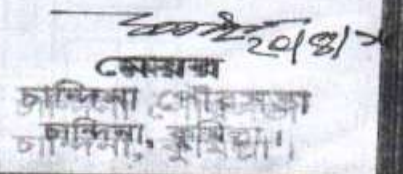 ২০/৪/
মেয়র
চান্দিনা পৌরসভা
চান্দিনা, কুমিল্লা।